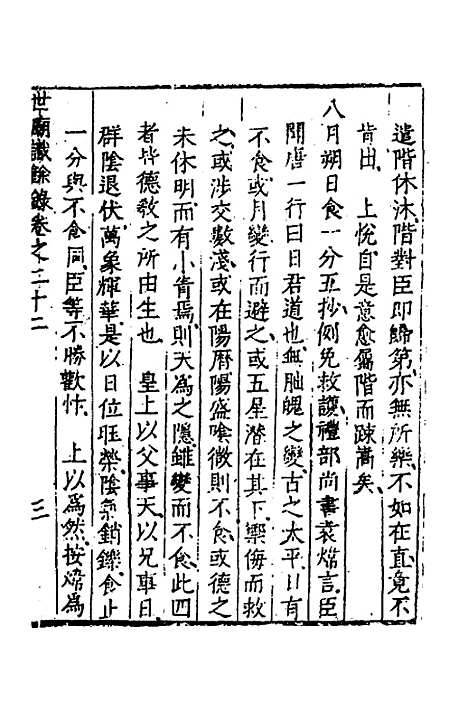 遣階休沐階對臣即歸第亦無所樂不如在直竟不
肯出　上悅自是意愈屬階而踈嵩矣
八月朔日食一分五抄例免救護禮部尚書袁煒言臣
聞唐一行曰日君道也無朏魄之變古之太平日有
不食或月變行而避之或五星潛在其下禦侮而救
之或涉交數淺或在陽曆陽盛陰微則不食或德之
未休明而有小眚焉則天為之隱雖變而不食此四
者皆德敎之所由生也　皇上以父事天以兄事日
群陰退伏萬象輝華是以日位旺榮陰氣銷鑠食止
一分與不食同臣等不勝歡忭　上以為然按煒為
世廟識餘錄卷之二十二　三